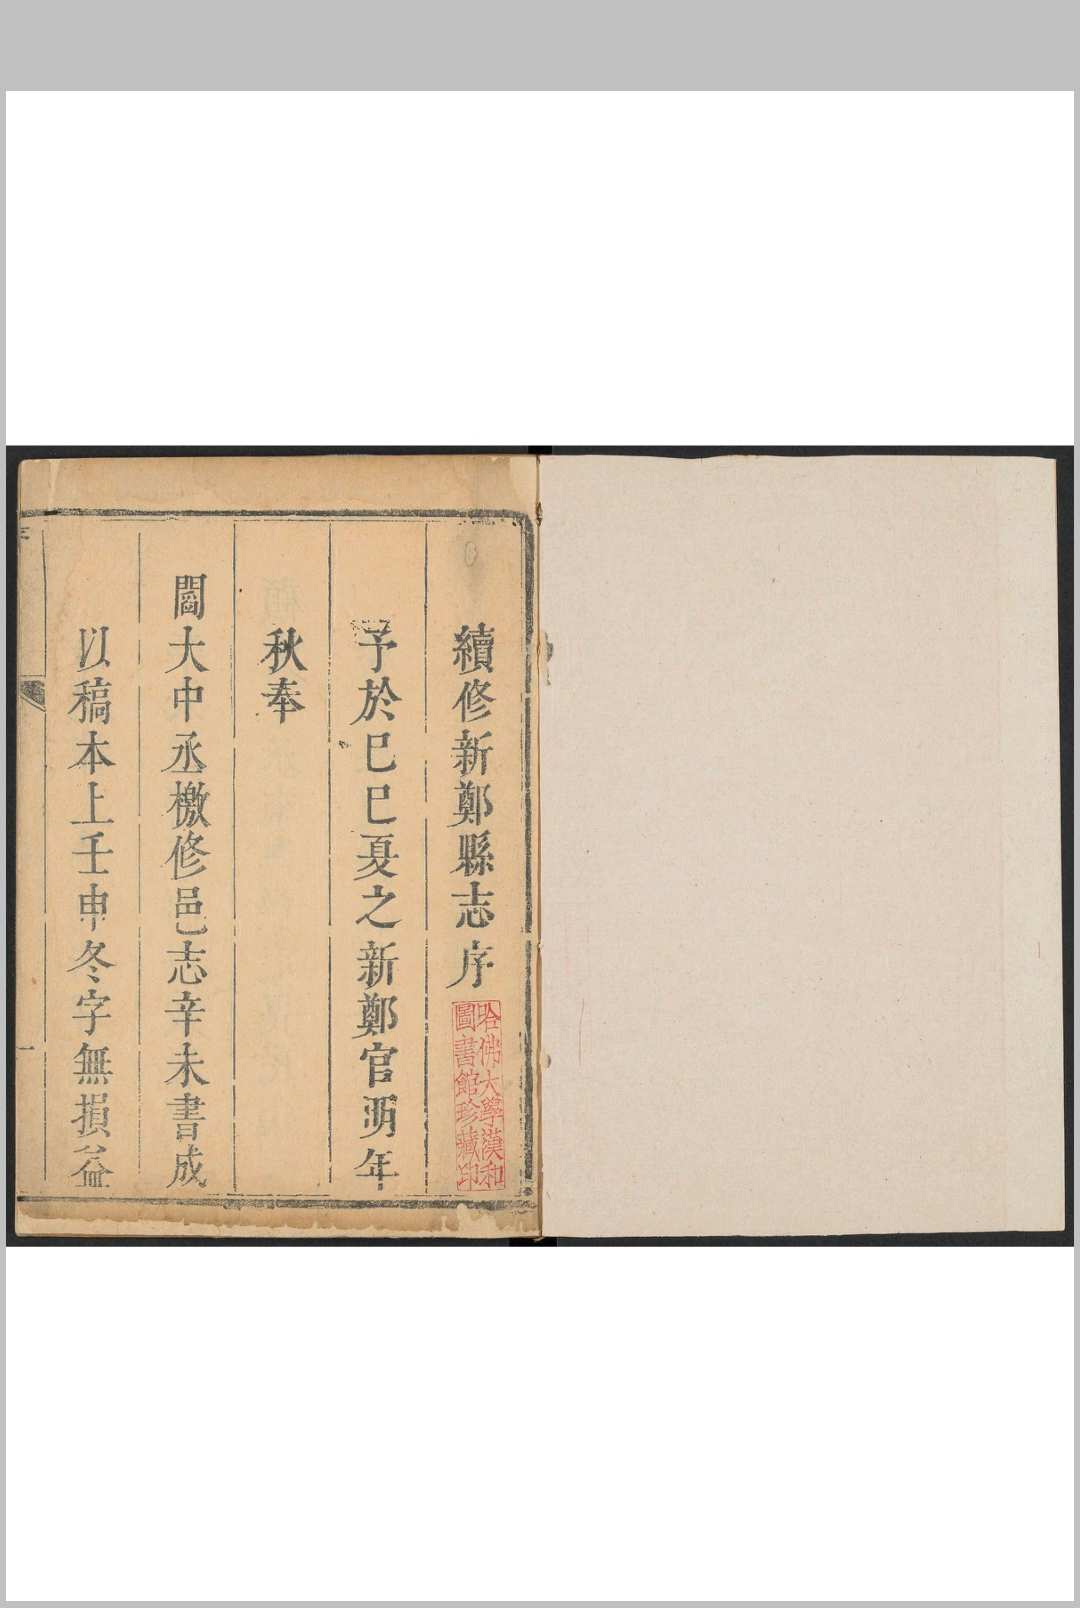 續修新鄭縣志序
哈佛大學漢和
圖書館珍藏印
予於巳巳夏之新鄭官
年
秋奉
閻大中丞檄修邑志辛未書成
以稿本上壬申冬字無損益
一